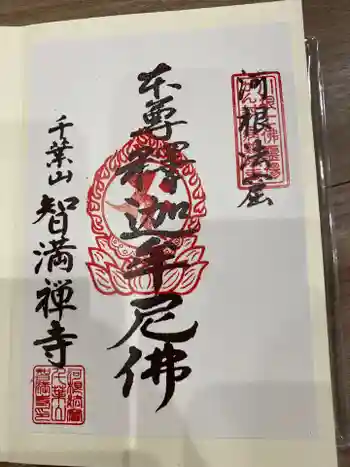 河根法窟
本尊釋迦牟尼佛
千葉山智満禅寺